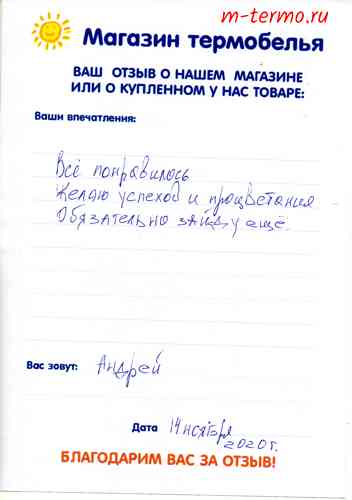 m-termo.ru
Магазин термобелья
ВАШ ОТЗЫВ О НАШЕМ МАГАЗИНЕ
ИЛИ О КУПЛЕННОМ У НАС ТОВАРЕ:
Ваши впечатления:
Всё понравилось
Желаю успехов и процветания
Обязательно зайду ещё.
Вас зовут: Андрей
Дата 14 ноября
2020г.
БЛАГОДАРИМ ВАС ЗА ОТЗЫВ!